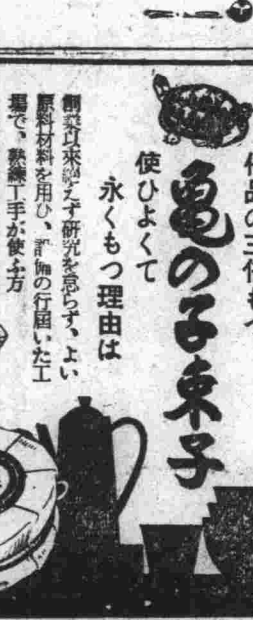 亀の子束子
使ひよくて
永くもつ理由は
創業以來絶えず研究を怠らず、よい
原料材料を用ひ、設備の行届いた工
場で、熟練工手が使ふ方